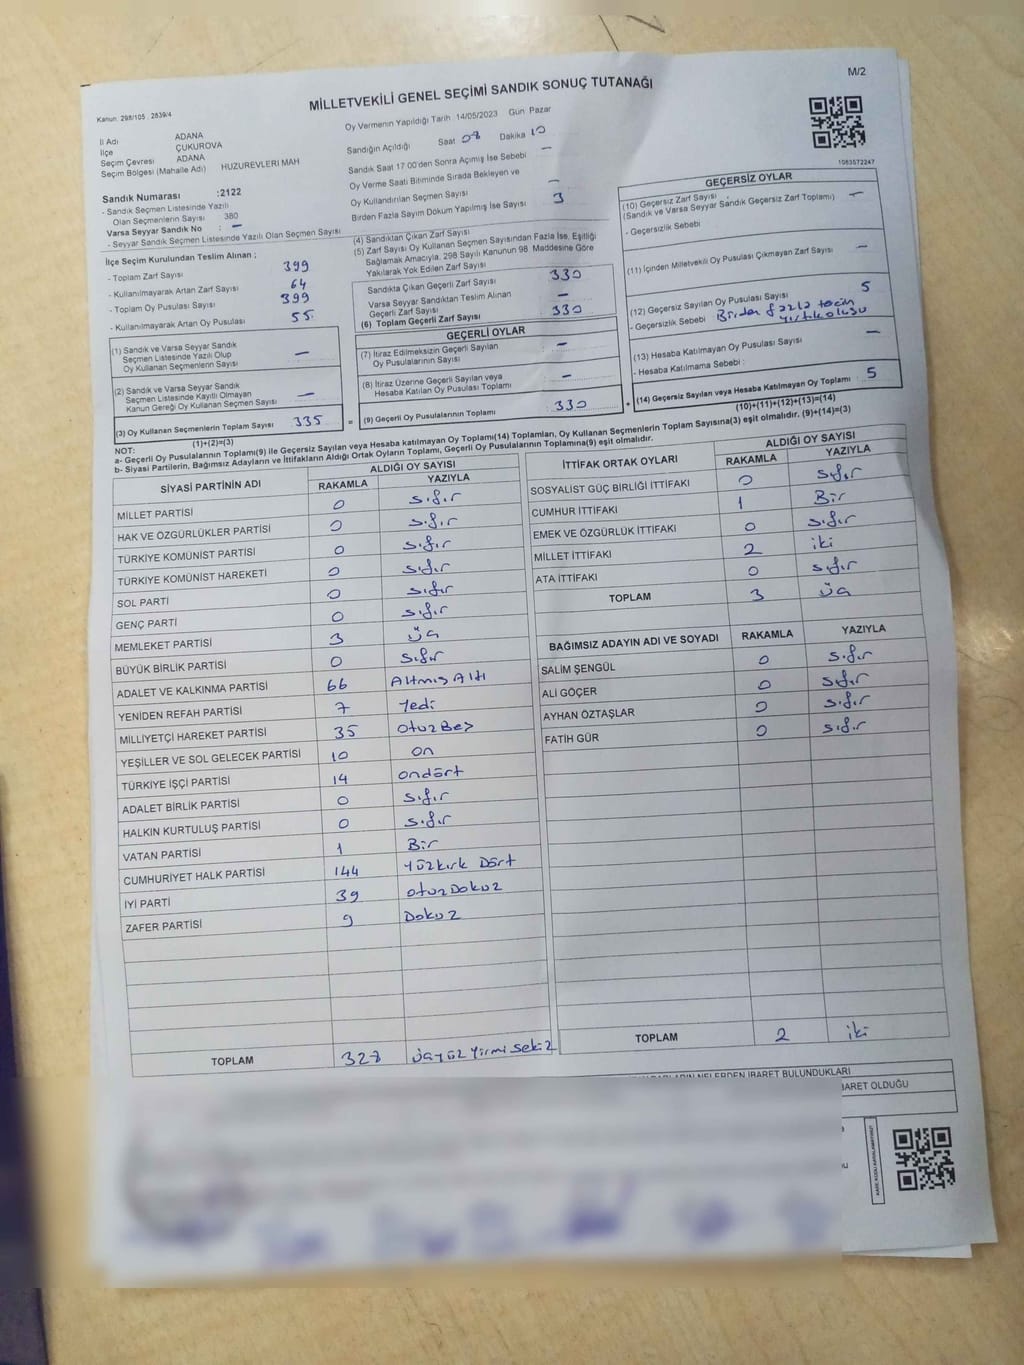 M/2
MİLLETVEKİLİ GENEL SEÇİMİ SANDIK SONUÇ TUTANAĞI
Kanun: 298/105 , 2839/4
Oy Vermenin Yapıldığı Tarih 14/05/2023 Gün Pazar
İl Adı ADANA
İlçe ÇUKUROVA
Seçim Çevresi ADANA
Seçim Bölgesi (Mahalle Adı) HUZUREVLERİ MAH
Sandık Numarası :2122
- Sandık Seçmen Listesinde Yazılı
Olan Seçmenlerin Sayısı 380
Varsa Seyyar Sandık No : –
- Seyyar Sandık Seçmen Listesinde Yazılı Olan Seçmen Sayısı
Sandığın Açıldığı Saat 08 Dakika 10
Sandık Saat 17:00'den Sonra Açımış İse Sebebi –
Oy Verme Saati Bitiminde Sırada Bekleyen ve
Oy Kullandırılan Seçmen Sayısı –
Birden Fazla Sayım Döküm Yapılmış İse Sayısı 3
1083572247
İlçe Seçim Kurulundan Teslim Alınan ;
- Toplam Zarf Sayısı 399
- Kullanılmayarak Artan Zarf Sayısı 64
- Toplam Oy Pusulası Sayısı 399
- Kullanılmayarak Artan Oy Pusulası 55
(1) Sandık ve Varsa Seyyar Sandık
Seçmen Listesinde Yazılı Olup
Oy Kullanan Seçmenlerin Sayısı –
(2) Sandık ve Varsa Seyyar Sandık
Seçmen Listesinde Kayıtlı Olmayan
Kanun Gereği Oy Kullanan Seçmen Sayısı –
(3) Oy Kullanan Seçmenlerin Toplam Sayısı 335
(1)+(2)=(3)
(4) Sandıktan Çıkan Zarf Sayısı
(5) Zarf Sayısı Oy Kullanan Seçmen Sayısından Fazla İse, Eşitliği
Sağlamak Amacıyla, 298 Sayılı Kanunun 98. Maddesine Göre
Yakılarak Yok Edilen Zarf Sayısı
Sandıkta Çıkan Geçerli Zarf Sayısı 330
Varsa Seyyar Sandıktan Teslim Alınan
Geçerli Zarf Sayısı –
(6) Toplam Geçerli Zarf Sayısı 330
GEÇERLİ OYLAR
(7) İtiraz Edilmeksizin Geçerli Sayılan
Oy Pusulalarının Sayısı –
(8) İtiraz Üzerine Geçerli Sayılan veya
Hesaba Katılan Oy Pusulası Toplamı –
= (9) Geçerli Oy Pusulalarının Toplamı 330 +
GEÇERSİZ OYLAR
(10) Geçersiz Zarf Sayısı
(Sandık ve Varsa Seyyar Sandık Geçersiz Zarf Toplamı) –
- Geçersizlik Sebebi
(11) İçinden Milletvekili Oy Pusulası Çıkmayan Zarf Sayısı –
(12) Geçersiz Sayılan Oy Pusulası Sayısı 5
- Geçersizlik Sebebi Birden fazla tercih
yırtık oluşu
(13) Hesaba Katılmayan Oy Pusulası Sayısı –
- Hesaba Katılmama Sebebi :
(14) Geçersiz Sayılan veya Hesaba Katılmayan Oy Toplamı 5
(10)+(11)+(12)+(13)=(14)
NOT:
a- Geçerli Oy Pusulalarının Toplamı(9) ile Geçersiz Sayılan veya Hesaba katılmayan Oy Toplamı(14) Toplamları, Oy Kullanan Seçmenlerin Toplam Sayısına(3) eşit olmalıdır. (9)+(14)=(3)
b- Siyasi Partilerin, Bağımsız Adayların ve İttifakların Aldığı Ortak Oyların Toplamı, Geçerli Oy Pusulalarının Toplamına(9) eşit olmalıdır.
SİYASİ PARTİNİN ADI ALDIĞI OY SAYISI
RAKAMLA YAZIYLA
MİLLET PARTİSİ 0 sıfır
HAK VE ÖZGÜRLÜKLER PARTİSİ 0 sıfır
TÜRKİYE KOMÜNİST PARTİSİ 0 sıfır
TÜRKİYE KOMÜNİST HAREKETİ 0 sıfır
SOL PARTİ 0 sıfır
GENÇ PARTİ 0 sıfır
MEMLEKET PARTİSİ 3 üç
BÜYÜK BİRLİK PARTİSİ 0 sıfır
ADALET VE KALKINMA PARTİSİ 66 Altmış Altı
YENİDEN REFAH PARTİSİ 7 Yedi
MİLLİYETÇİ HAREKET PARTİSİ 35 otuz Beş
YEŞİLLER VE SOL GELECEK PARTİSİ 10 on
TÜRKİYE İŞÇİ PARTİSİ 14 ondört
ADALET BİRLİK PARTİSİ 0 sıfır
HALKIN KURTULUŞ PARTİSİ 0 sıfır
VATAN PARTİSİ 1 Bir
CUMHURİYET HALK PARTİSİ 144 Yüzkırk Dört
İYİ PARTİ 39 otuz Dokuz
ZAFER PARTİSİ 9 Dokuz
TOPLAM 328 üçyüz yirmi sekiz
İTTİFAK ORTAK OYLARI ALDIĞI OY SAYISI
RAKAMLA YAZIYLA
SOSYALİST GÜÇ BİRLİĞİ İTTİFAKI 0 sıfır
CUMHUR İTTİFAKI 1 Bir
EMEK VE ÖZGÜRLÜK İTTİFAKI 0 sıfır
MİLLET İTTİFAKI 2 iki
ATA İTTİFAKI 0 sıfır
TOPLAM 3 üç
BAĞIMSIZ ADAYIN ADI VE SOYADI RAKAMLA YAZIYLA
SALİM ŞENGÜL 0 sıfır
ALİ GÖÇER 0 sıfır
AYHAN ÖZTAŞLAR 0 sıfır
FATİH GÜR 0 sıfır
TOPLAM 2 iki
NELERDEN İBARET BULUNDUKLARI
İBARET OLDUĞU